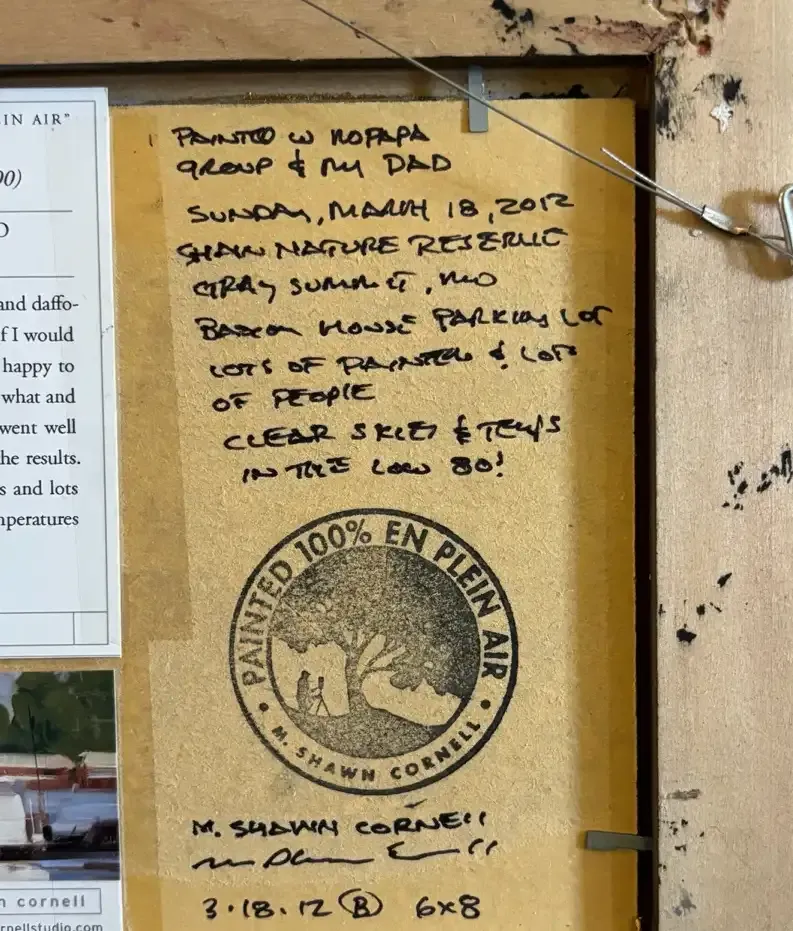 IN AIR"
00)
O
and daffo-
f I would
happy to
what and
went well
he results.
s and lots
nperatures
n cornell
rnellstudio.com
PAINTED W MOPAPA
GROUP & MY DAD
SUNDAY, MARCH 18, 2012
SHAW NATURE RESERVE
GRAY SUMMIT, MO
HOUSE PARKING LOT
LOTS OF PAINTERS & LOTS
OF PEOPLE
CLEAR SKIES & TEMPS
IN THE LOW 80!
PAINTED 100% EN PLEIN AIR
• M. SHAWN CORNELL •
M. SHAWN CORNELL
3.18.12 B 6x8